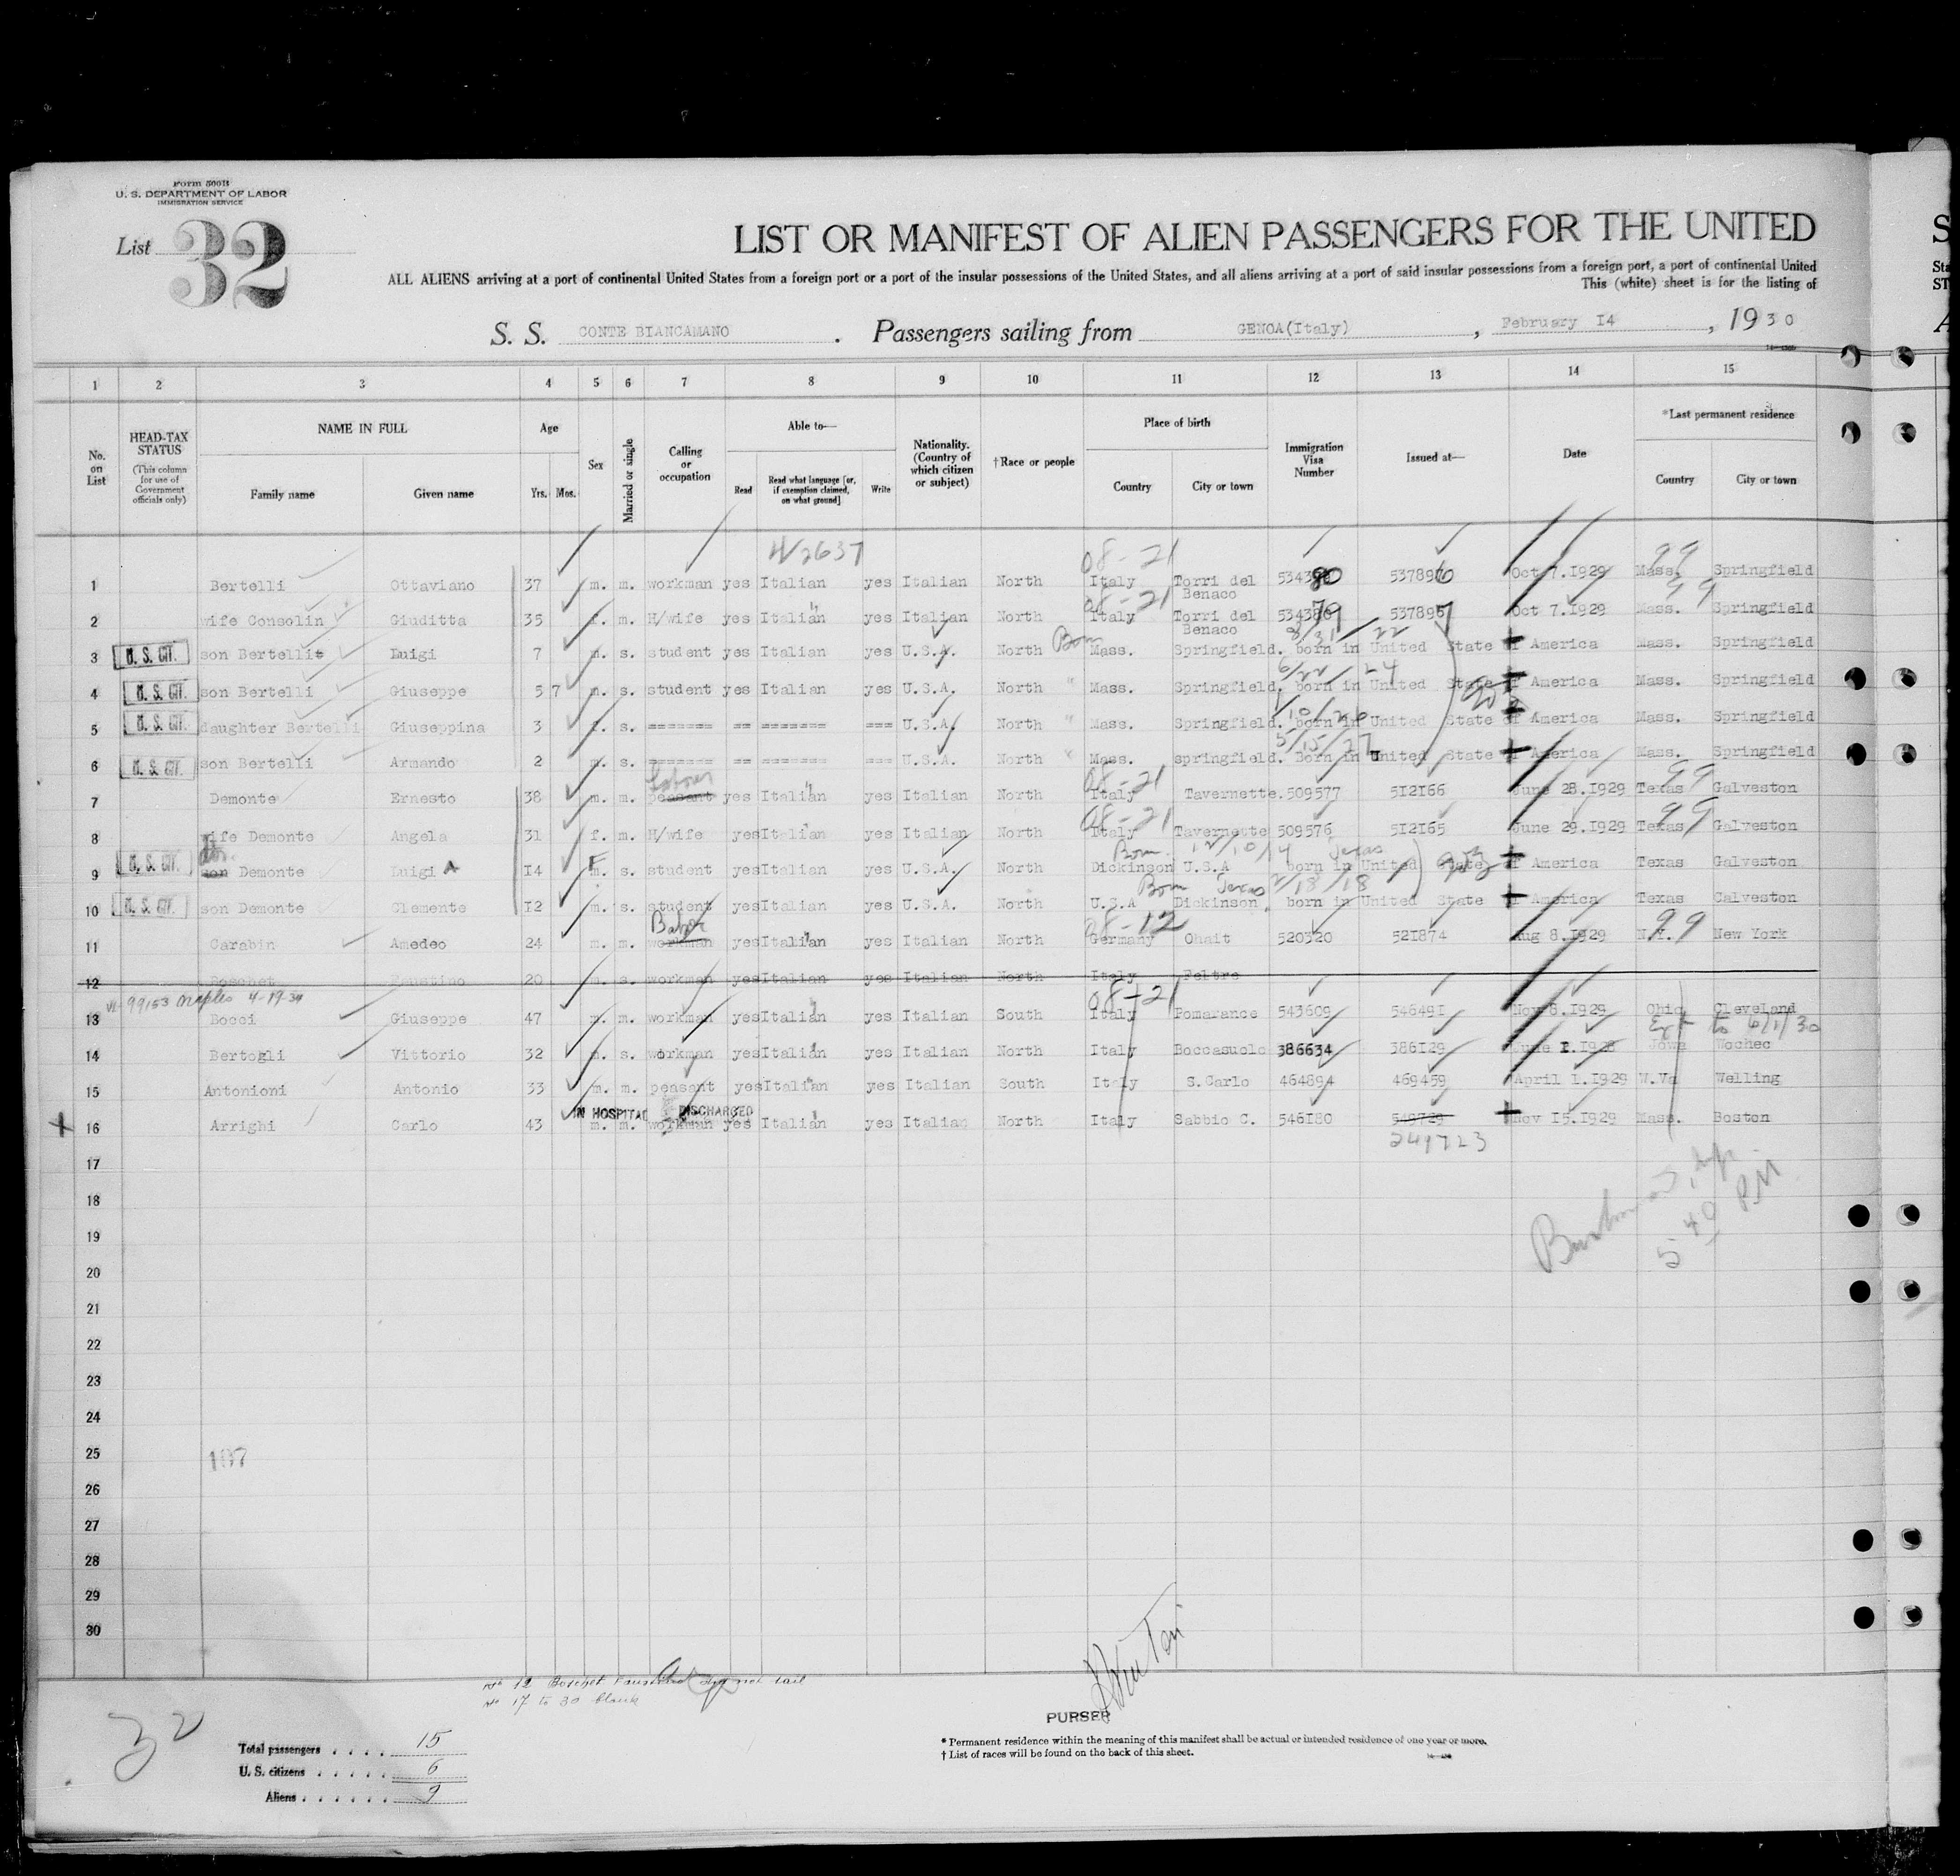 Form 500B
U. S. DEPARTMENT OF LABOR
IMMIGRATION SERVICE
List 32
LIST OR MANIFEST OF ALIEN PASSENGERS FOR THE UNITED
ALL ALIENS arriving at a port of continental United States from a foreign port or a port of the insular possessions of the United States, and all aliens arriving at a port of said insular possessions from a foreign port, a port of continental United
This (white) sheet is for the listing of
S. S. CONTE BIANCAMANO . Passengers sailing from GENOA(Italy) , February I4 , 1930
1 2 3 4 5 6 7 8 9 10 11 12 13 14 15
No. on List
HEAD-TAX STATUS (This column for use of Government officials only)
NAME IN FULL Family name Given name
Age Yrs. Mos.
Sex
Married or single
Calling or occupation
Able to— Read Read what language [or, if exemption claimed, on what ground] Write
Nationality. (Country of which citizen or subject)
†Race or people
Place of birth Country City or town
Immigration Visa Number
Issued at—
Date
*Last permanent residence Country City or town
08-21 99
1 Bertelli Ottaviano 37 m. m. workman yes Italian yes Italian North Italy Torri del Benaco 534380 537896 Oct 7.I929 Mass. Springfield
08-21 99
2 wife Consolin Giuditta 35 f. m. H/wife yes Italian yes Italian North Italy Torri del Benaco 534379 537897 Oct 7.I929 Mass. Springfield
8/31/22
3 U. S. CIT. son Bertelli Luigi 7 m. s. student yes Italian yes U.S.A. North Born Mass. Springfield. born in United State of America Mass. Springfield
6/22/24
4 U. S. CIT. son Bertelli Giuseppe 5 7 m. s. student yes Italian yes U.S.A. North " Mass. Springfield. born in United State of America Mass. Springfield
1/10/26
5 U. S. CIT. daughter Bertelli Giuseppina 3 f. s. ======= == ======= === U.S.A. North " Mass. Springfield. born in United State of America Mass. Springfield
5/15/27
6 U. S. CIT. son Bertelli Armando 2 m. s. ======= == ======= === U.S.A. North " Mass. springfield. Born in United State of America Mass. Springfield
08-21 99
7 Demonte Ernesto 38 m. m. peasant yes Italian yes Italian North Italy Tavernette. 509577 5I2I66 June 28.I929 Texas Galveston
08-21 99
8 wife Demonte Angela 31 f. m. H/wife yes Italian yes Italian North Italy Tavernette 509576 5I2I65 June 29.I929 Texas Galveston
Born 12/10/14 Texas
9 U. S. CIT. son Demonte Luigi A I4 F s. student yes Italian yes U.S.A. North Dickinson U.S.A born in United State of America Texas Galveston
Born Texas 2/18/18
10 U. S. CIT. son Demonte Clemente I2 m. s. student yes Italian yes U.S.A. North U.S.A Dickinson. born in United State of America Texas Galveston
08-12 99
11 Carabin Amedeo 24 m. m. workman yes Italian yes Italian North Germany Ohait 520320 52I874 Aug 8.I929 N.Y. New York
12 Boschet Faustino 20 m. s. workman yes Italian yes Italian North Italy Feltre
99153 Naples 4-19-34 08-21
13 Bocci Giuseppe 47 m. m. workman yes Italian yes Italian South Italy Pomarance 543609 54649I Nov 8.I929 Ohio Cleveland
Ext to 6/1/30
14 Bertogli Vittorio 32 m. s. workman yes Italian yes Italian North Italy Boccasuolo 386634 386I29 June 2.I928 Jowa Wochec
15 Antonioni Antonio 33 m. m. peasant yes Italian yes Italian South Italy S.Carlo 464894 469459 April I.I929 W.Va Welling
IN HOSPITAL DISCHARGED
16 Arrighi Carlo 43 m. m. workman yes Italian yes Italian North Italy Sabbio C. 546I80 549729 Nov I5.I929 Mass. Boston
249723
17
18
19
5 40 PM
20
21
22
23
24
25
26
27
28
29
30
No 12 Boschet Faustino did not sail
No 17 to 30 blank
PURSER
32
Total passengers . . . . 15
U. S. citizens . . . . . 6
Aliens . . . . . . 9
* Permanent residence within the meaning of this manifest shall be actual or intended residence of one year or more.
† List of races will be found on the back of this sheet.